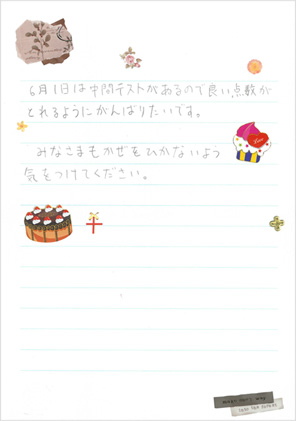 6月1日は中間テストがあるので良い点数が
とれるようにがんばりたいです。
みなさまもかぜをひかないよう
気をつけてください。